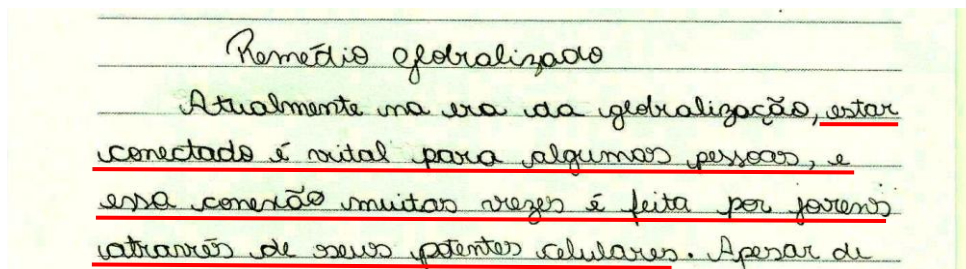 Remédio globalizado
Atualmente na era da globalização, estar
conectado é vital para algumas pessoas, e
essa conexão muitas vezes é feita por jovens
através de seus potentes celulares. Apesar de